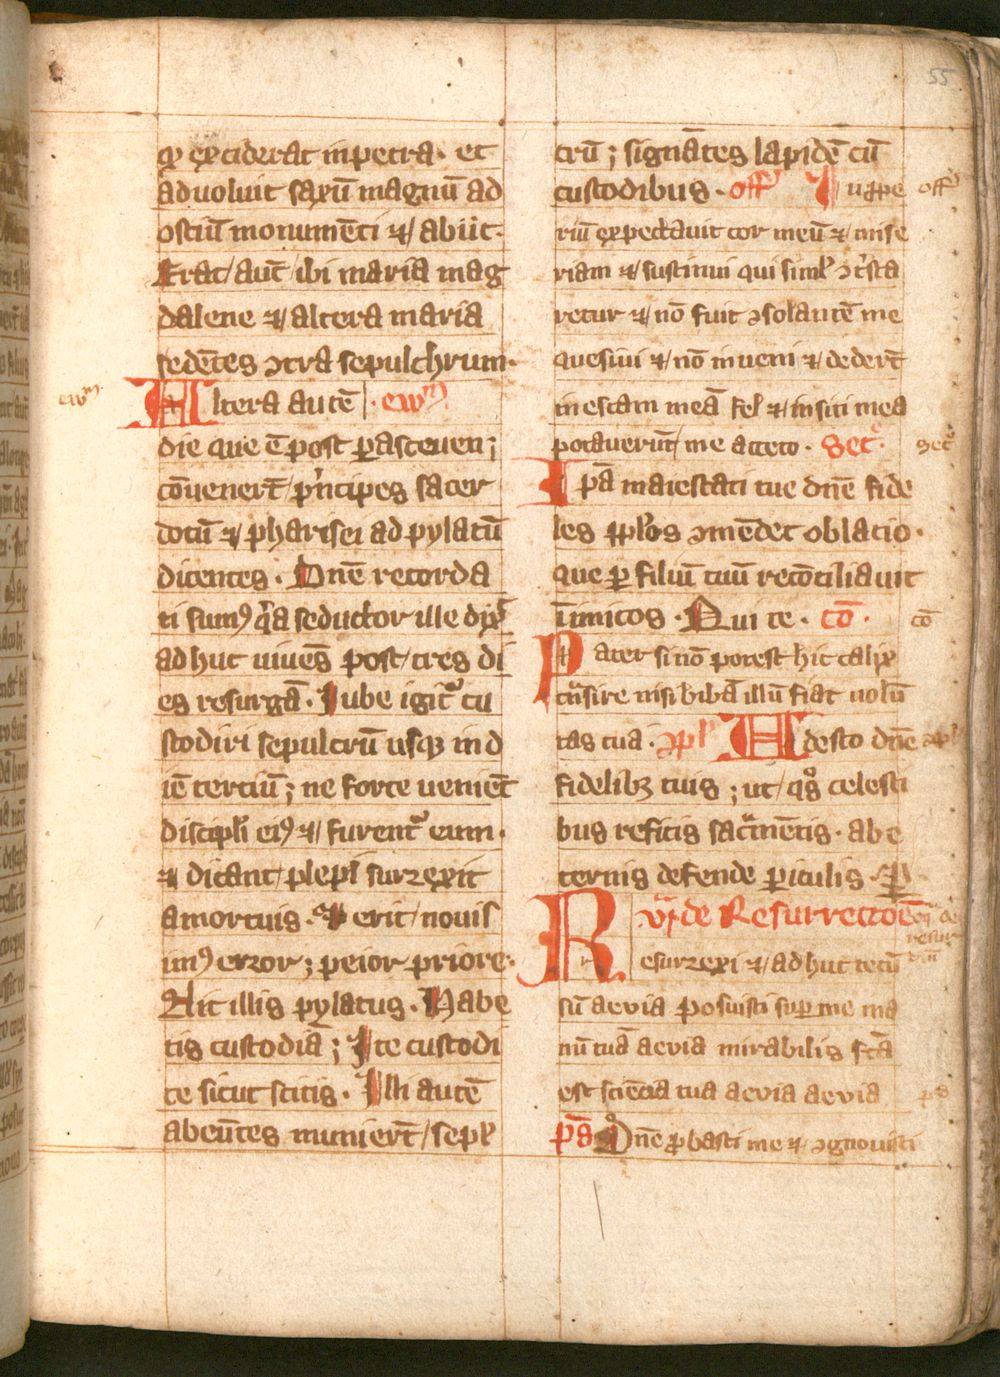 55
qͦ exciderat in petra · et
aduoluit saxū magnū ad
ostiū monumēti ⁊ abiit ·
Erat aut̄ ibi maria mag
dalene ⁊ altera maria
sedētes ↄtra sepulchrum ·
Altera autē · ew̄m
die que ē post ꝑasceuen ;
cōuenert̄ pⁱncipes sacer
dotū ⁊ pharisei ad pylatū
dicentes · Dn̄e recorda
ti sumꝰ qͣa seductor ille dix̄
adhuc uiuēs post tres di
es resurgā · Iube igit᷑ cu
stodiri sepulcrū usqꝫ in d
iē terciū ; ne forte ueniēt
discipl̄i eiꝰ ⁊ furent᷑ eum ·
⁊ dicant plepī surrexit
a mortuis · Et erit nouis
imꝰ error ; peior priore ·
Ait illis pylatus · Habe
tis custodiā ; Ite custodi
te sicut scitis · Illi autē
abeūtes muniert̄ sepl̄
crū ; signātes lapidē cū
custodibus · off᷑ Inꝓpe
riū expectauit cor meū ⁊ mise
riam ⁊ sustinui qui siml̄ ↄtⁱsta
retur ⁊ nō fuit ↄsolantē me
quesiui ⁊ nō inueni ⁊ dedert̄
in escam meā fel ⁊ in siti mea
potauerūt me aceto · Secᷓ.
Ipā maiestati tue dn̄e fide
les ppl̄os ↄmēdet oblacio ·
que ꝑ filiū tuū recōciliauit
īimicos · Qui te · cō ·
Pater si nō potest hic calix
tͣnsire nisi bibā illū fiat uolū
tas tua · ↄpl̄ Adesto dn̄e
fidelibꝫ tuis ; ut qͦs celesti
bus reficis sacͣmētis · ab e
ternis defende ꝑiculis · P
de Resurrectōe
Resurrexi ⁊ adhuc tecū
sū aevia posuisti suꝑ me ma
nū tuā aevia mirabilis fc̄a
est sciēcia tua aevia aevia
pͣs Dn̄e ꝓbasti me ⁊ ↄgnouisti
ew̄m
off᷑
Secᷓ
cō
ↄpl̄
ps